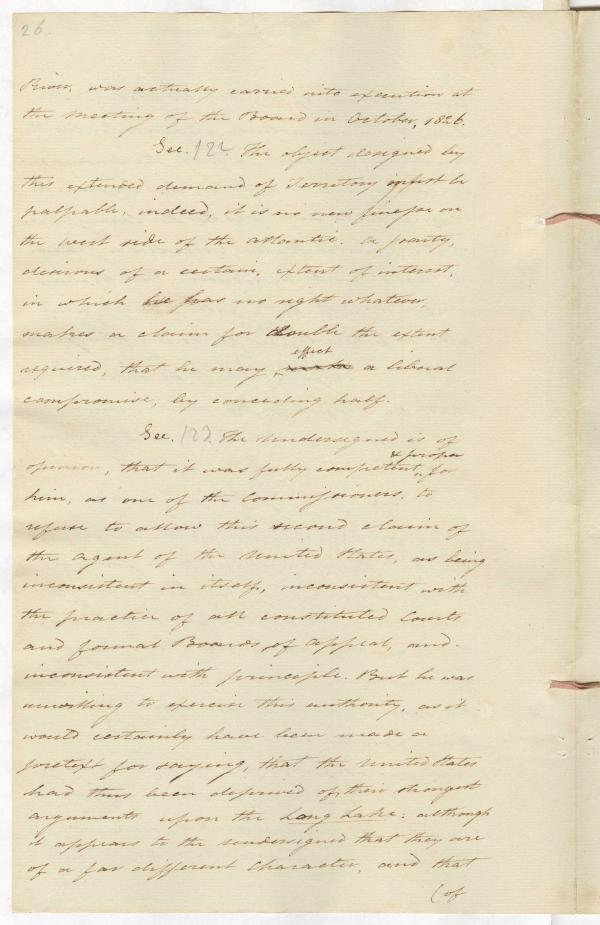 26.
was actually carried into execution at
the Meeting of the Board in October, 1826.
Sec. 122. The object designed by
this extended demand of Territory must be
palpable, indeed, it is no new finesse on
the west side of the atlantic. A party,
desirous of a certain, extent of interest,
in which he has no right whatever,
makes a claim for double the extent
required, that he may effect a liberal
compromise, by conceding half.
Sec. 123. The Undersigned is of
opinion, that it was fully competent & proper for
him, as one of the Commissioners, to
refuse to allow this second claim of
the Agent of the United States, as being
inconsistent in itself, inconsistent with
the practice of all constituted Courts
and formal Boards of appeal, and
inconsistent with principle. But he was
unwilling to exercise this authority, as it
would certainly have been made a
pretext for saying, that the United States
had thus been deprived of their strongest
arguments upon the Long Lake: although
it appears to the undersigned that they are
of a far different Character, and that
(of